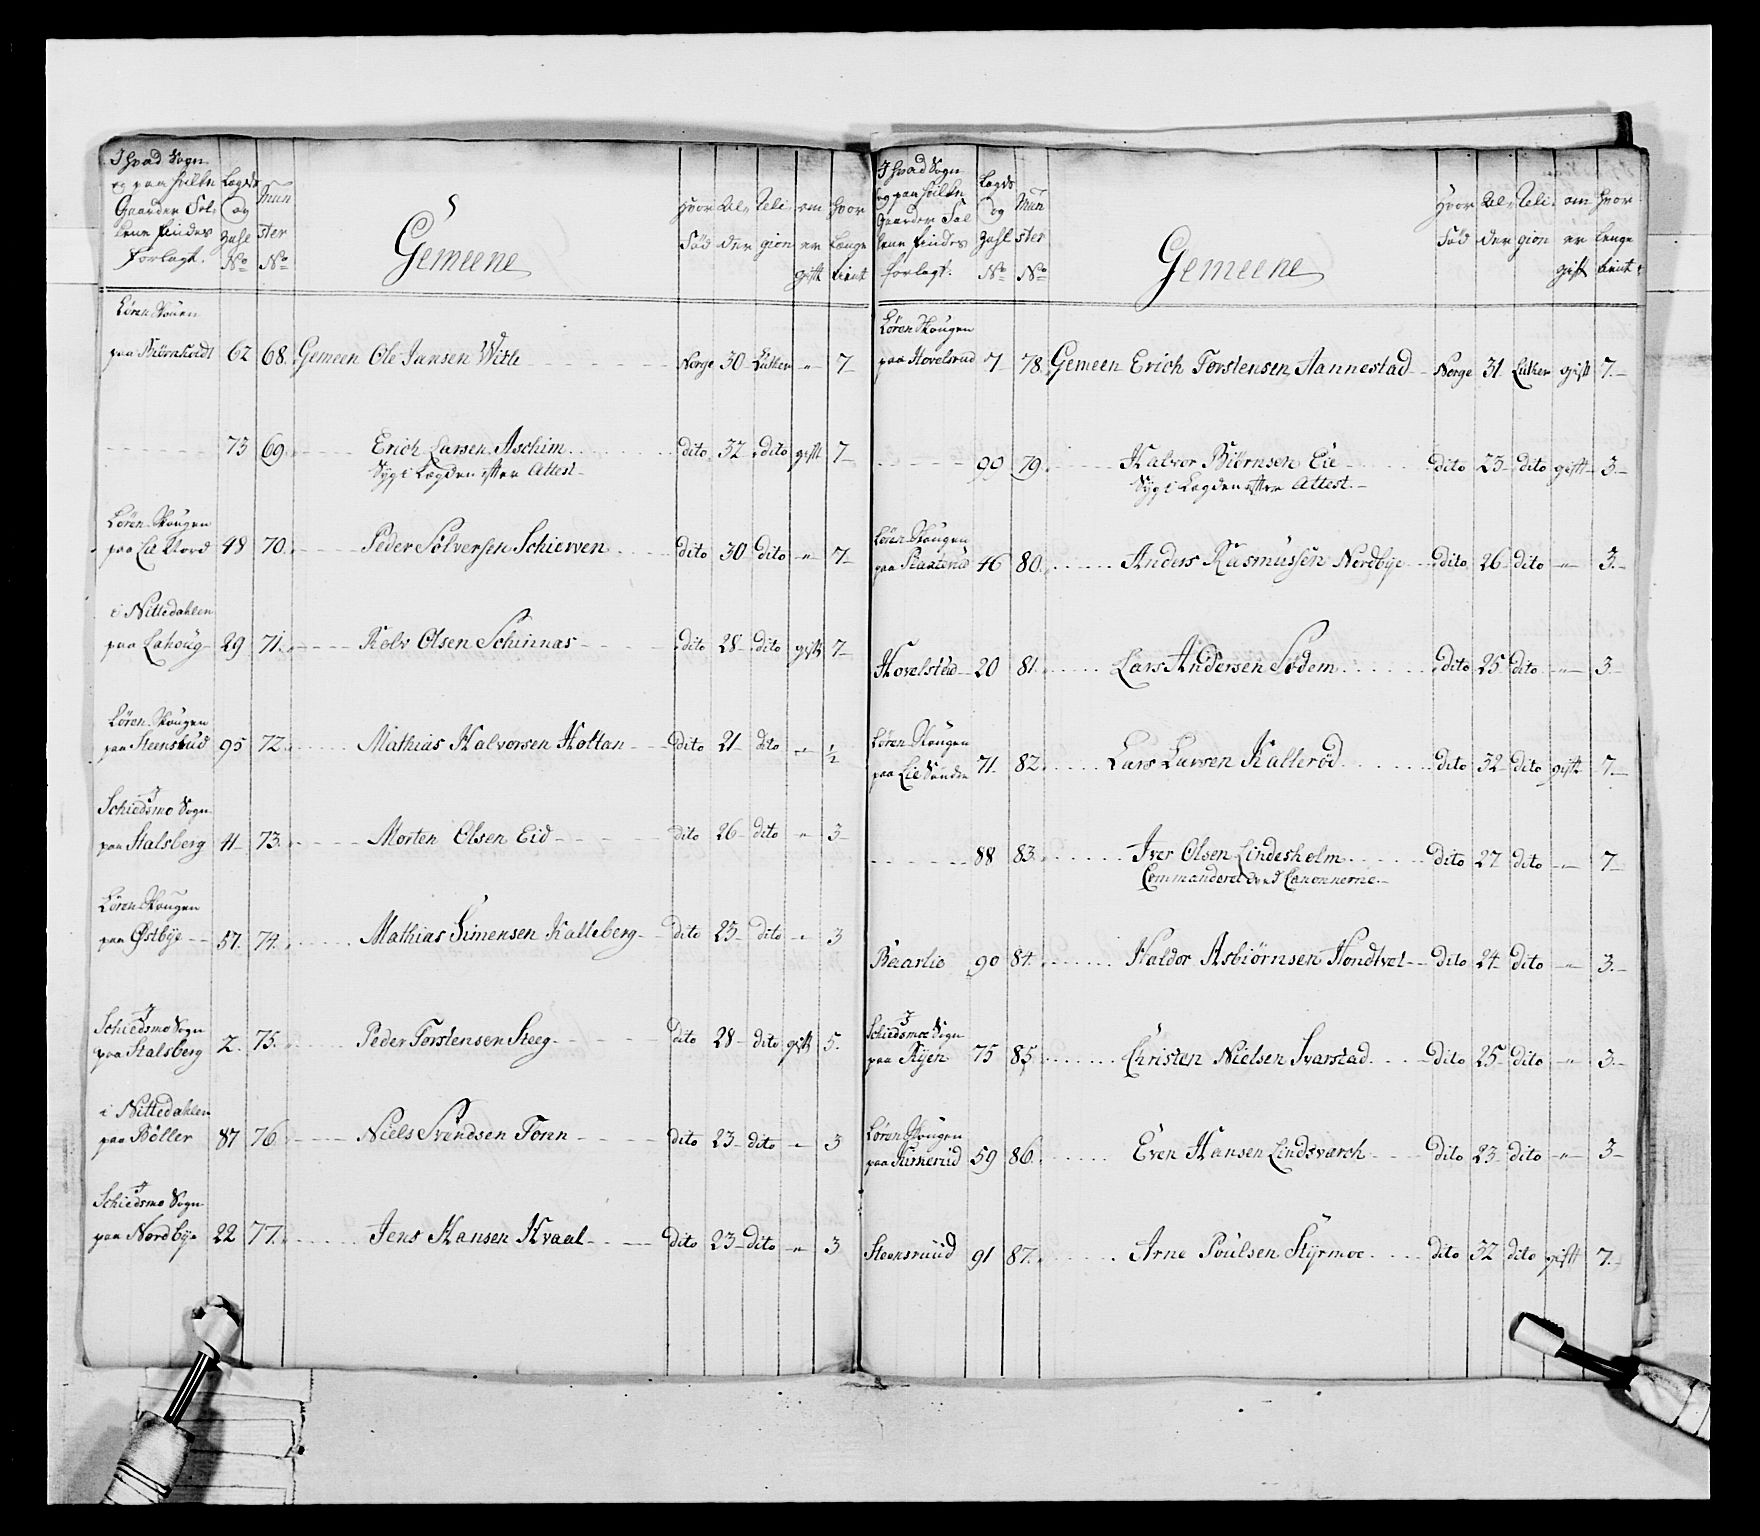 I hvad Sogn
og paa hvilke
Gaarder Fol-
kene findes
forlagt.
Lægds
og
Zahl
No
Mun
ster
No
Gemeene
Hvor
Fød
Al-
der
Reli-
gion
om
er
gift
Hvor
længe
tient
Løren Skouen
paa Biørnholdt 62 68. Gemeen Ole Jansen Witli Norge 30 Luther " 7
73 69. Erich Larsen Aschim dito 32 dito gift 7
Syg i Lægden efter Attest
Løren Skougen
paa Lie Nord 48 70. Peder Sølversen Schierven dito 30 dito " 7
i Nittedahlen
paa Lahoug 29 71. Rolv Olsen Schinnas dito 28 dito gift 7
Løren Skougen
paa Steensrud 95 72. Mathias Halvorsen Holtan dito 21 dito " 1/2
I
Schiedsmo Sogn
paa Stalsberg 11 73. Morten Olsen Eid dito 26 dito " 3
Løren Skougen
paa Østbÿe 57. 74. Mathias Simensen Kalleberg dito 23 dito " 3
I
Schiedsmo Sogn
paa Stalsberg 2. 75. Peder Torstensen Steeg dito 28 dito gift 5.
i Nittedahlen
paa Bøller 87 76 Niels Svendsen Tonn dito 23 dito " 3
I
Schiedsmo Sogn
paa Nordbÿe 22 77. Jens Hansen Hvaal dito 23 dito " 3
I hvad Sogn
og paa hvilke
Gaarder Fol
kene findes
forlagt.
Lægds
og
Zahl
No
Mun
ster
No
Gemeene
Hvor
Fød
Al-
der
Reli-
gion
om
er
gift
Hvor
længe
tient
Løren Skougen
paa Hovelsrud 7 78. Gemeen Erich Torstensen Aannestad Norge 31 Luther gift 7.
99 79. Halvor Biørnsen Eie dito 23 dito gift 3
Syg i Lægden efter Attest.
Løren Skougen
paa 46 80. Anders Rasmussen Nordbÿe dito 26 dito " 3.
20 81. Lars Andersen Sødem dito 25 dito " 3
Løren Skougen
paa Lie Søndre 71. 82. Lars Larsen Kallerød dito 32 dito gift 7.
88 83. Iver Olsen Lindesholm dito 27 dito " 7
Commanderet ved Canonnerne
90 84. Haldor Asbiørnsen Hondtvet dito 24 dito " 3.
I
Schiedsmoe Sogn
paa Rÿen 75 85. Christen Nielsen Svarstad dito 25 dito " 3.
Løren Skougen
paa 59 86. Even Hansen Lindsværch dito 23 dito " 3
Steensruud 91 87. Arne Poulsen Stÿrmoe dito 32 dito gift 7.